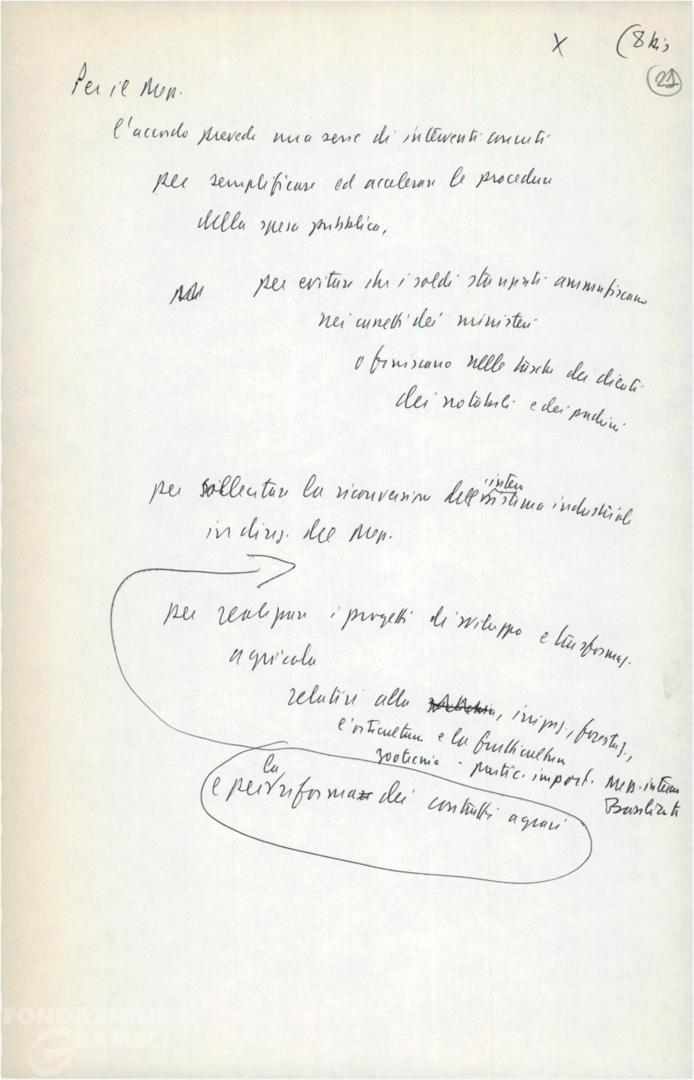 X (8 bis
21
Per il Mezz.
l'accordo prevede una serie di interventi concreti
per semplificare ed accelerare le procedure
della spesa pubblica,
per evitare che i soldi stanziati ammuffiscano
nei cassetti dei ministeri
o finiscano nelle tasche dei clienti
dei notabili e dei padrini
per sollecitare la riconversione dell'intero sistema industriale
in direz. del Mezz.
per realizzare i progetti di sviluppo e trasformaz.
agricola
relativi alla irrigaz., forestaz.,
l'orticultura e la frutticultura
zootecnia - partic. import. Mezz. interno
Basilicata
e per la riforma dei contratti agrari
FONDAZIONE
GRAMSCI